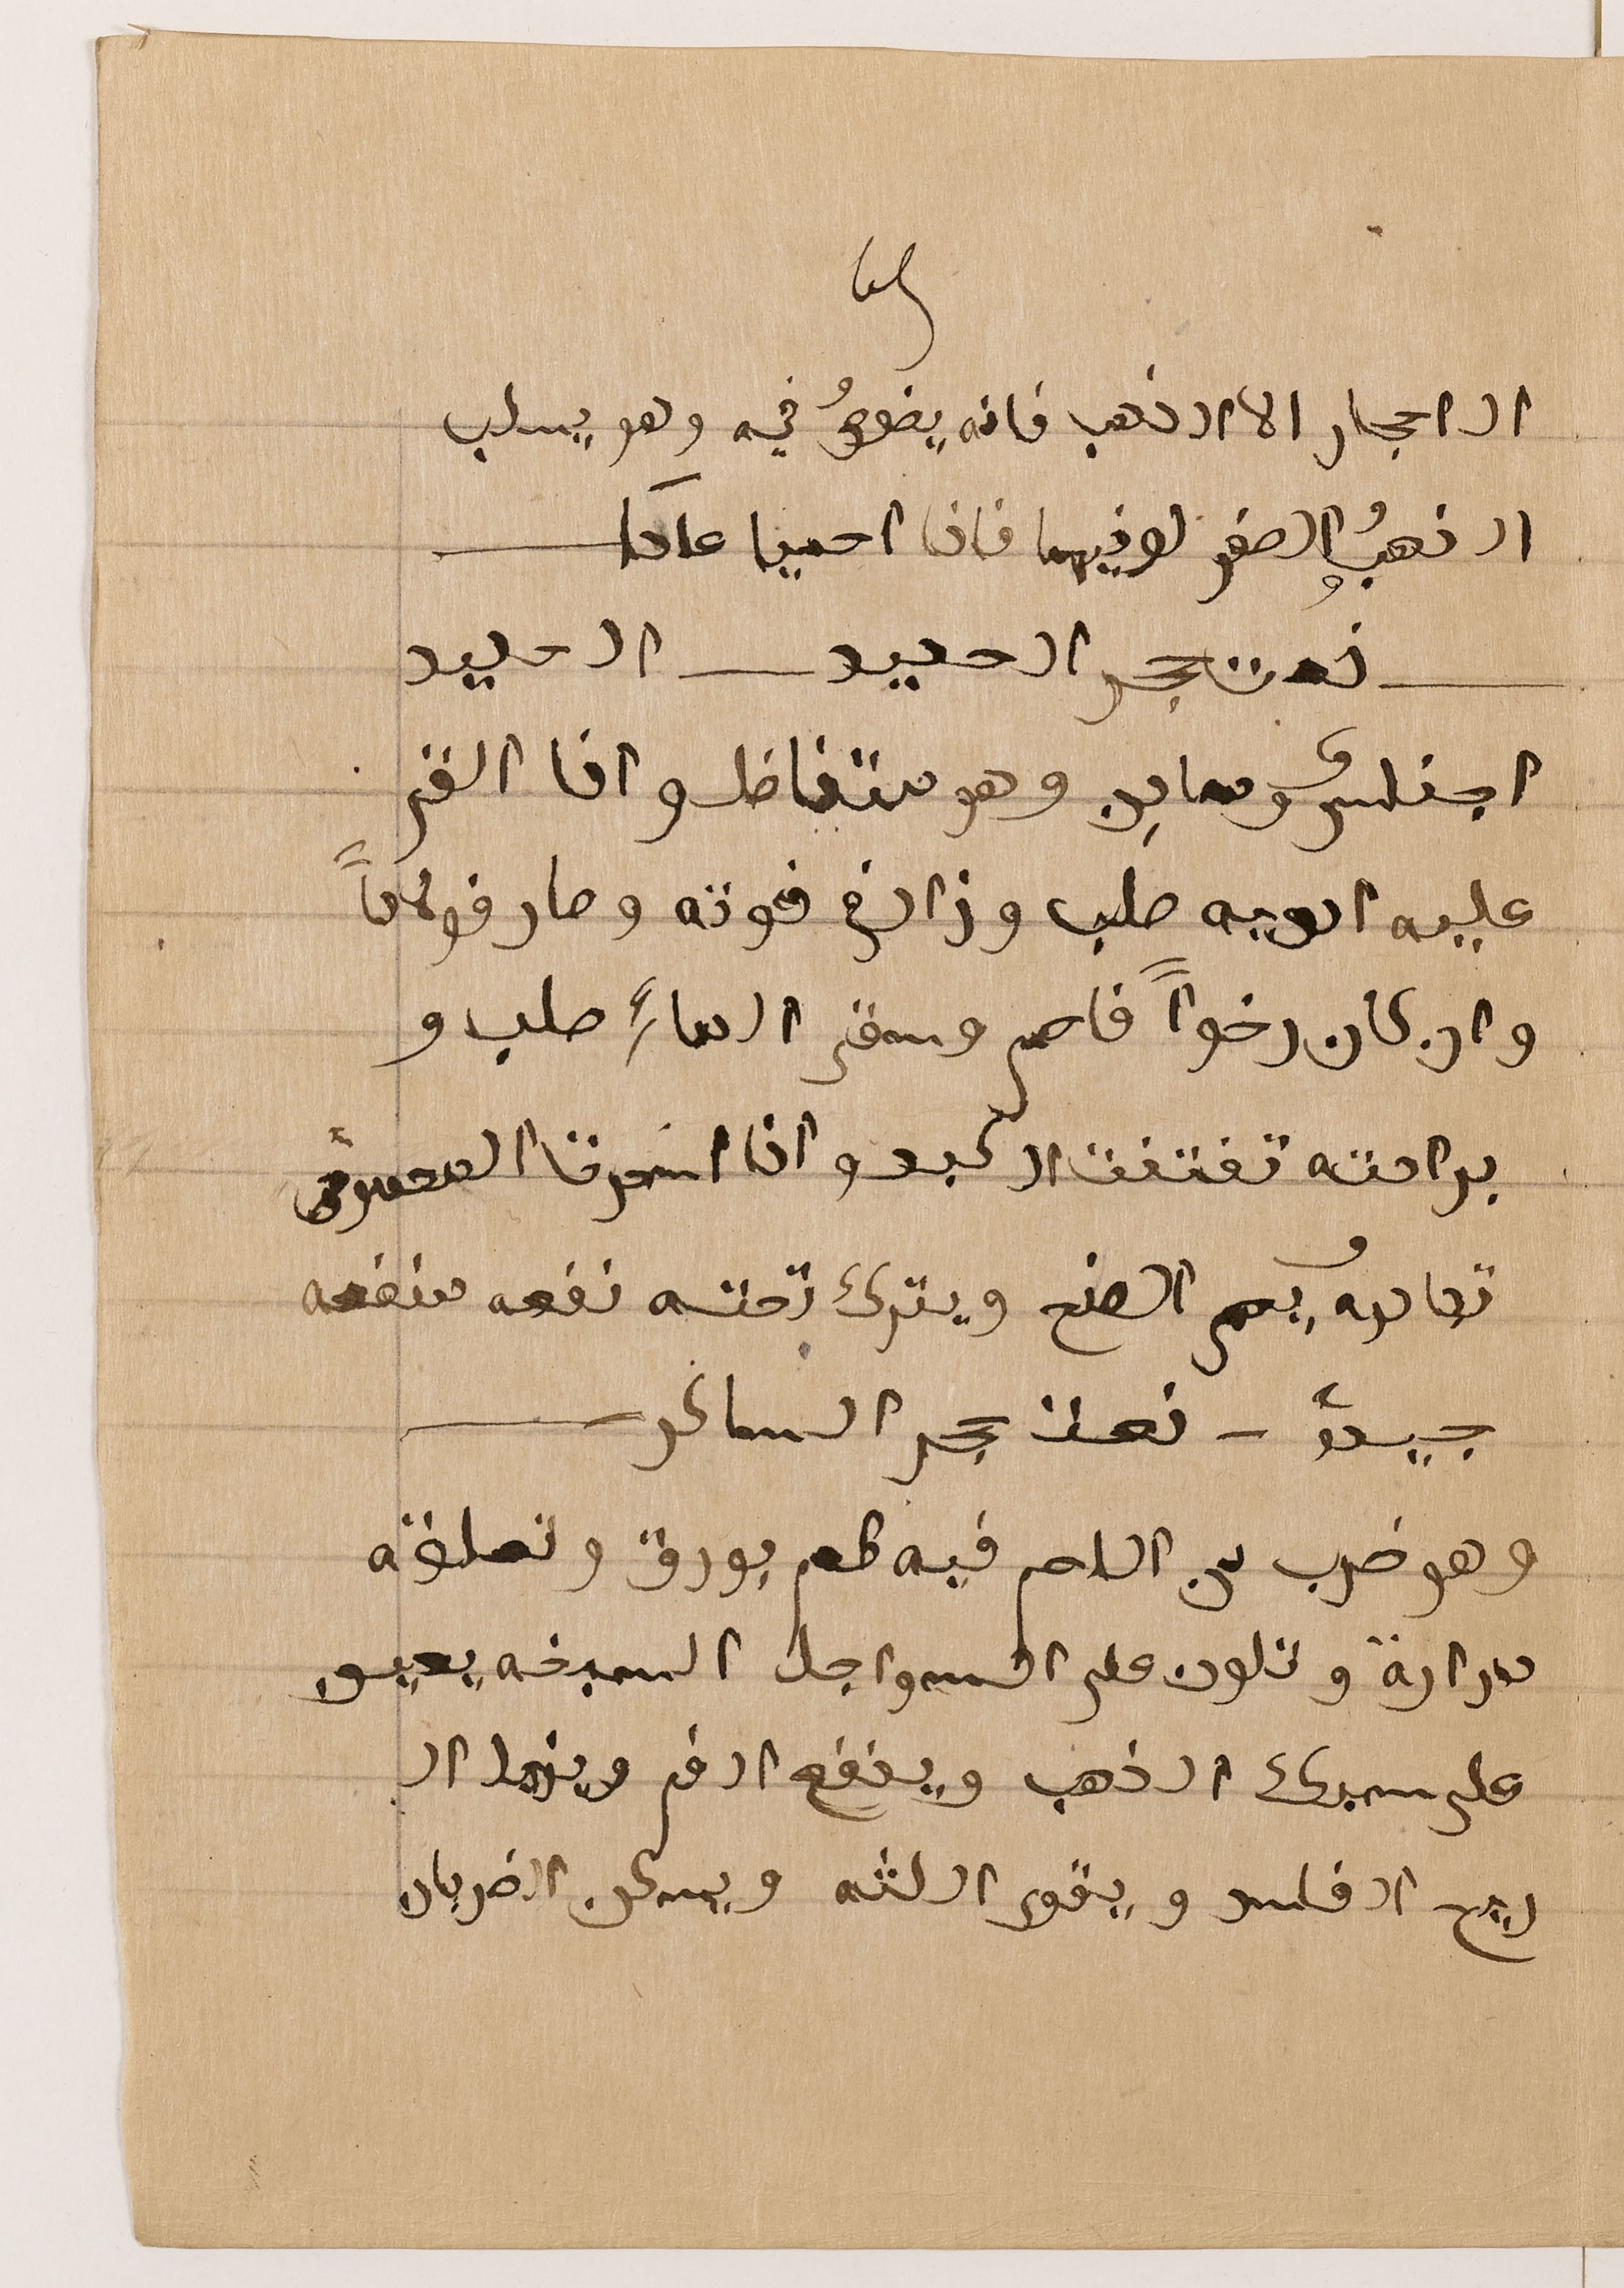 الاحجار الا الذهب فانه يغوص فيه وهو يسلب
الذهب الصفر لونهما فاذا احميا عادا
نعت حجر الحديد الحديد
اجناس ومعادن وهو متفاضل واذا القى
عليه ادويه صلب وزادة قوته وصار فولاذاً
وان كان رخواً فاحم وسقى الماء صلب و
برادته تفتفت الكبد واذا اخذت
يعمى الصنع ويترك تحته نفعه منفعه
جيدةً - نعت حجر السانكر
وهو ضرب من الملح فيه طعم بورق وتعلوه
مرارة وتكون على السواحل السبخه يعين
على سبك الذهب وينفع الفم ويزيل ال
ريح الفاسد ويقوى اللثه ويسكن الضربان